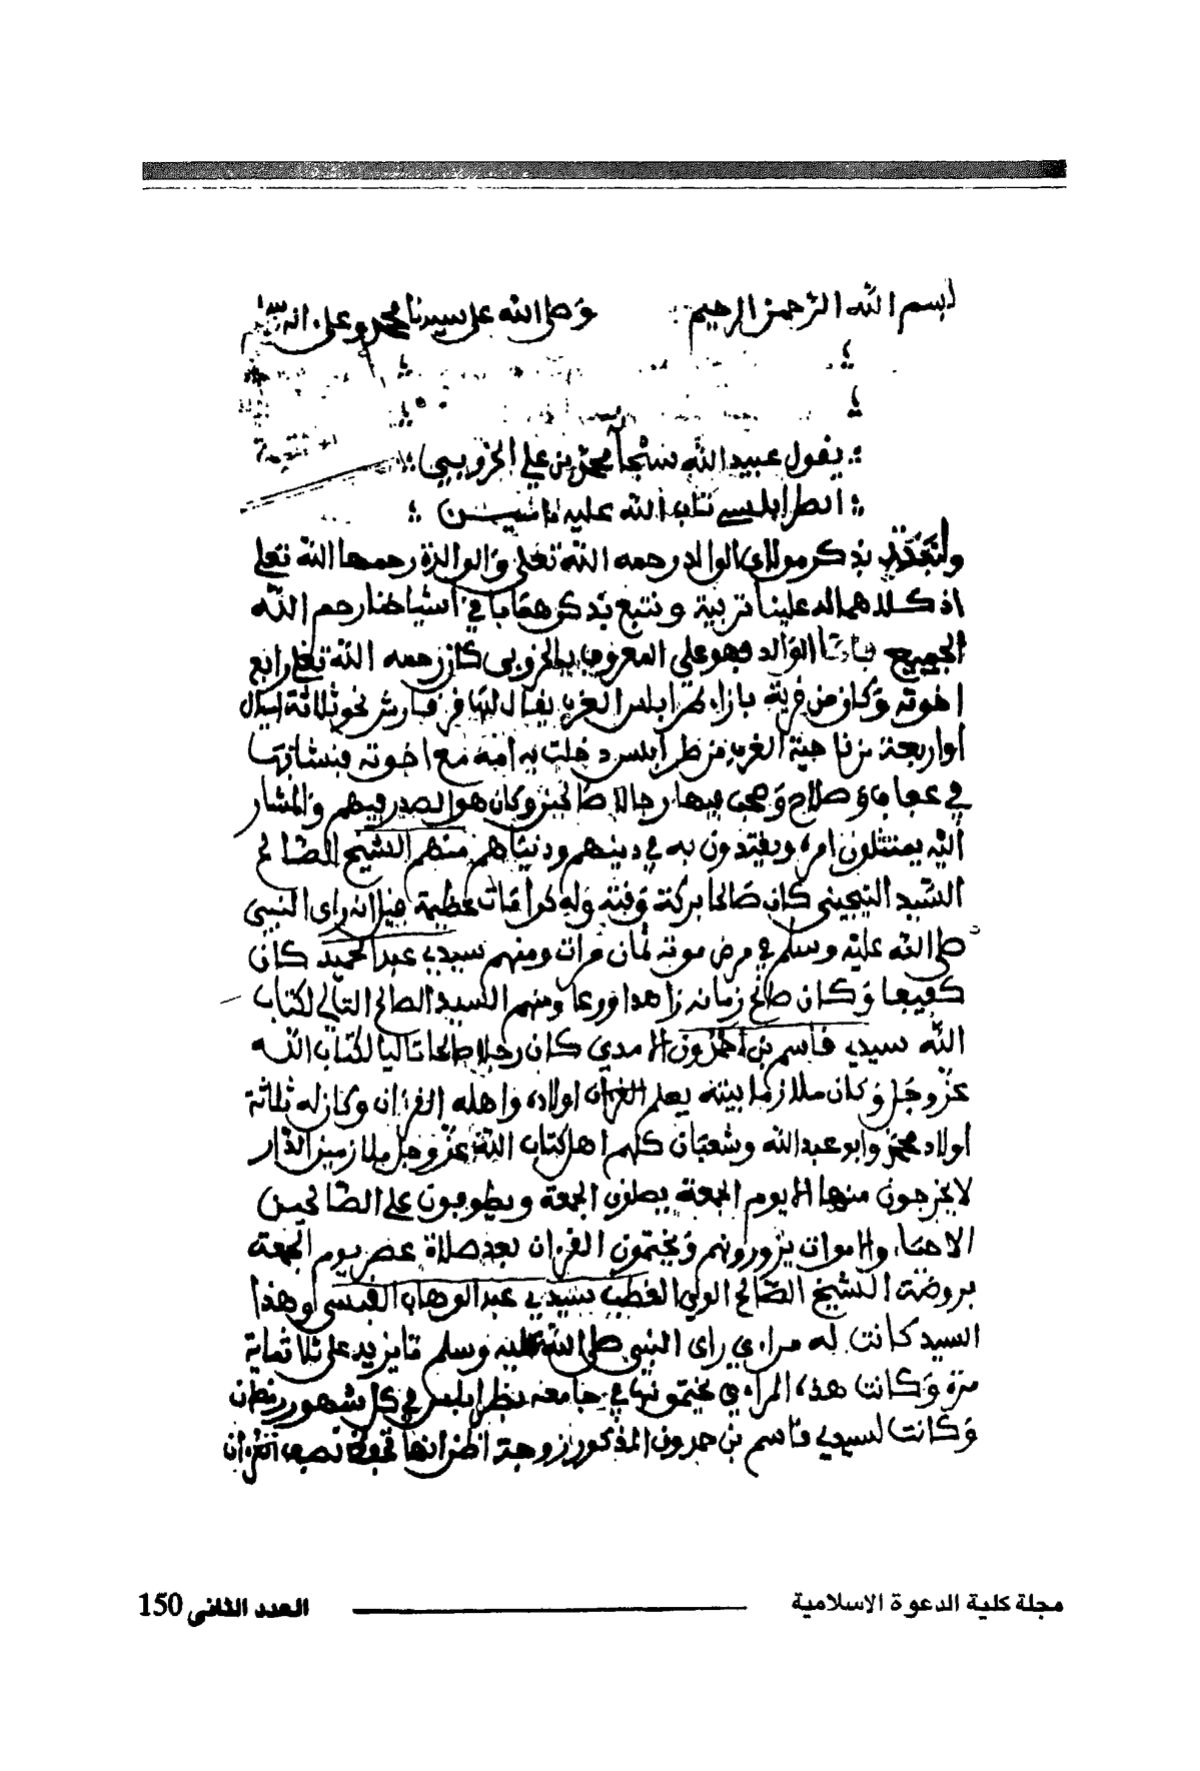 بسم الله الرحمن الرحيم وصلى الله على سيدنا محمد وعلى اله
يقول عبيد الله محمد بن علي الخروبي
الطرابلسي تاب الله عليه
ولنبتدئ بذكر مولاي الوالد رحمه الله تعلى والوالدة رحمها الله تعلى
اذ كلاهما له علينا تربية ونتبع بذكرهما باقي اشياخنا رحم الله
الجميع فاما الوالد فهو علي المعروف بالخروبي كان رحمه الله تعلى رابع
اخوته وكان من قرية بازاء طرابلس الغرب يقال لها قرقارش نحو ثلاثة اميال
او اربعة من ناحية الغرب من طرابلس دخلت به امه مع اخوته فنشا بها
في عفاف وصلاح وصحب فيها رجالا صالحين وكان هو الصدر فيهم والمشار
اليه يمتثلون امره ويقتدون به في دينهم ودنياهم منهم الشيخ الصالح
السيد التجيني كان صالحا بركة وقته وله كرامات عظيمة قيل انه راى النبي
صلى الله عليه وسلم في مرض موته ثمان مرات ومنهم سيدي عبد الحميد كان
كفيفا وكان صالح زمانه زاهدا ورعا ومنهم السيد الصالح التالي لكتاب
الله سيدي قاسم بن حمدون كان رجلا صالحا تاليا لكتاب الله
عز وجل وكان ملازما بيته يعلم القرءان اولاده واهله القرءان وكان له ثلاثة
اولاد محمد وابو عبد الله وشعبان كلهم اهل كتاب الله عز وجل ملازمين الدار
لا يخرجون منها الا يوم الجمعة يصلون الجمعة ويطوفون على الصالحين
الاحياء والاموات يزورونهم ويختمون القرءان بعد صلاة عصر يوم الجمعة
بروضة الشيخ الصالح الولي القطب سيدي عبد الوهاب القيسي وهذا
السيد كانت له مراءي راى النبي صلى الله عليه وسلم ما يزيد على ثلاثماية
مرة وكانت هذه المراءي يختمونها في جامعه بطرابلس في كل شهور رمضان
وكانت لسيدي قاسم بن حمدون المذكور زوجة اظن انها نصف القرءان
مجلة كلية الدعوة الاسلامية
العدد الثاني 150